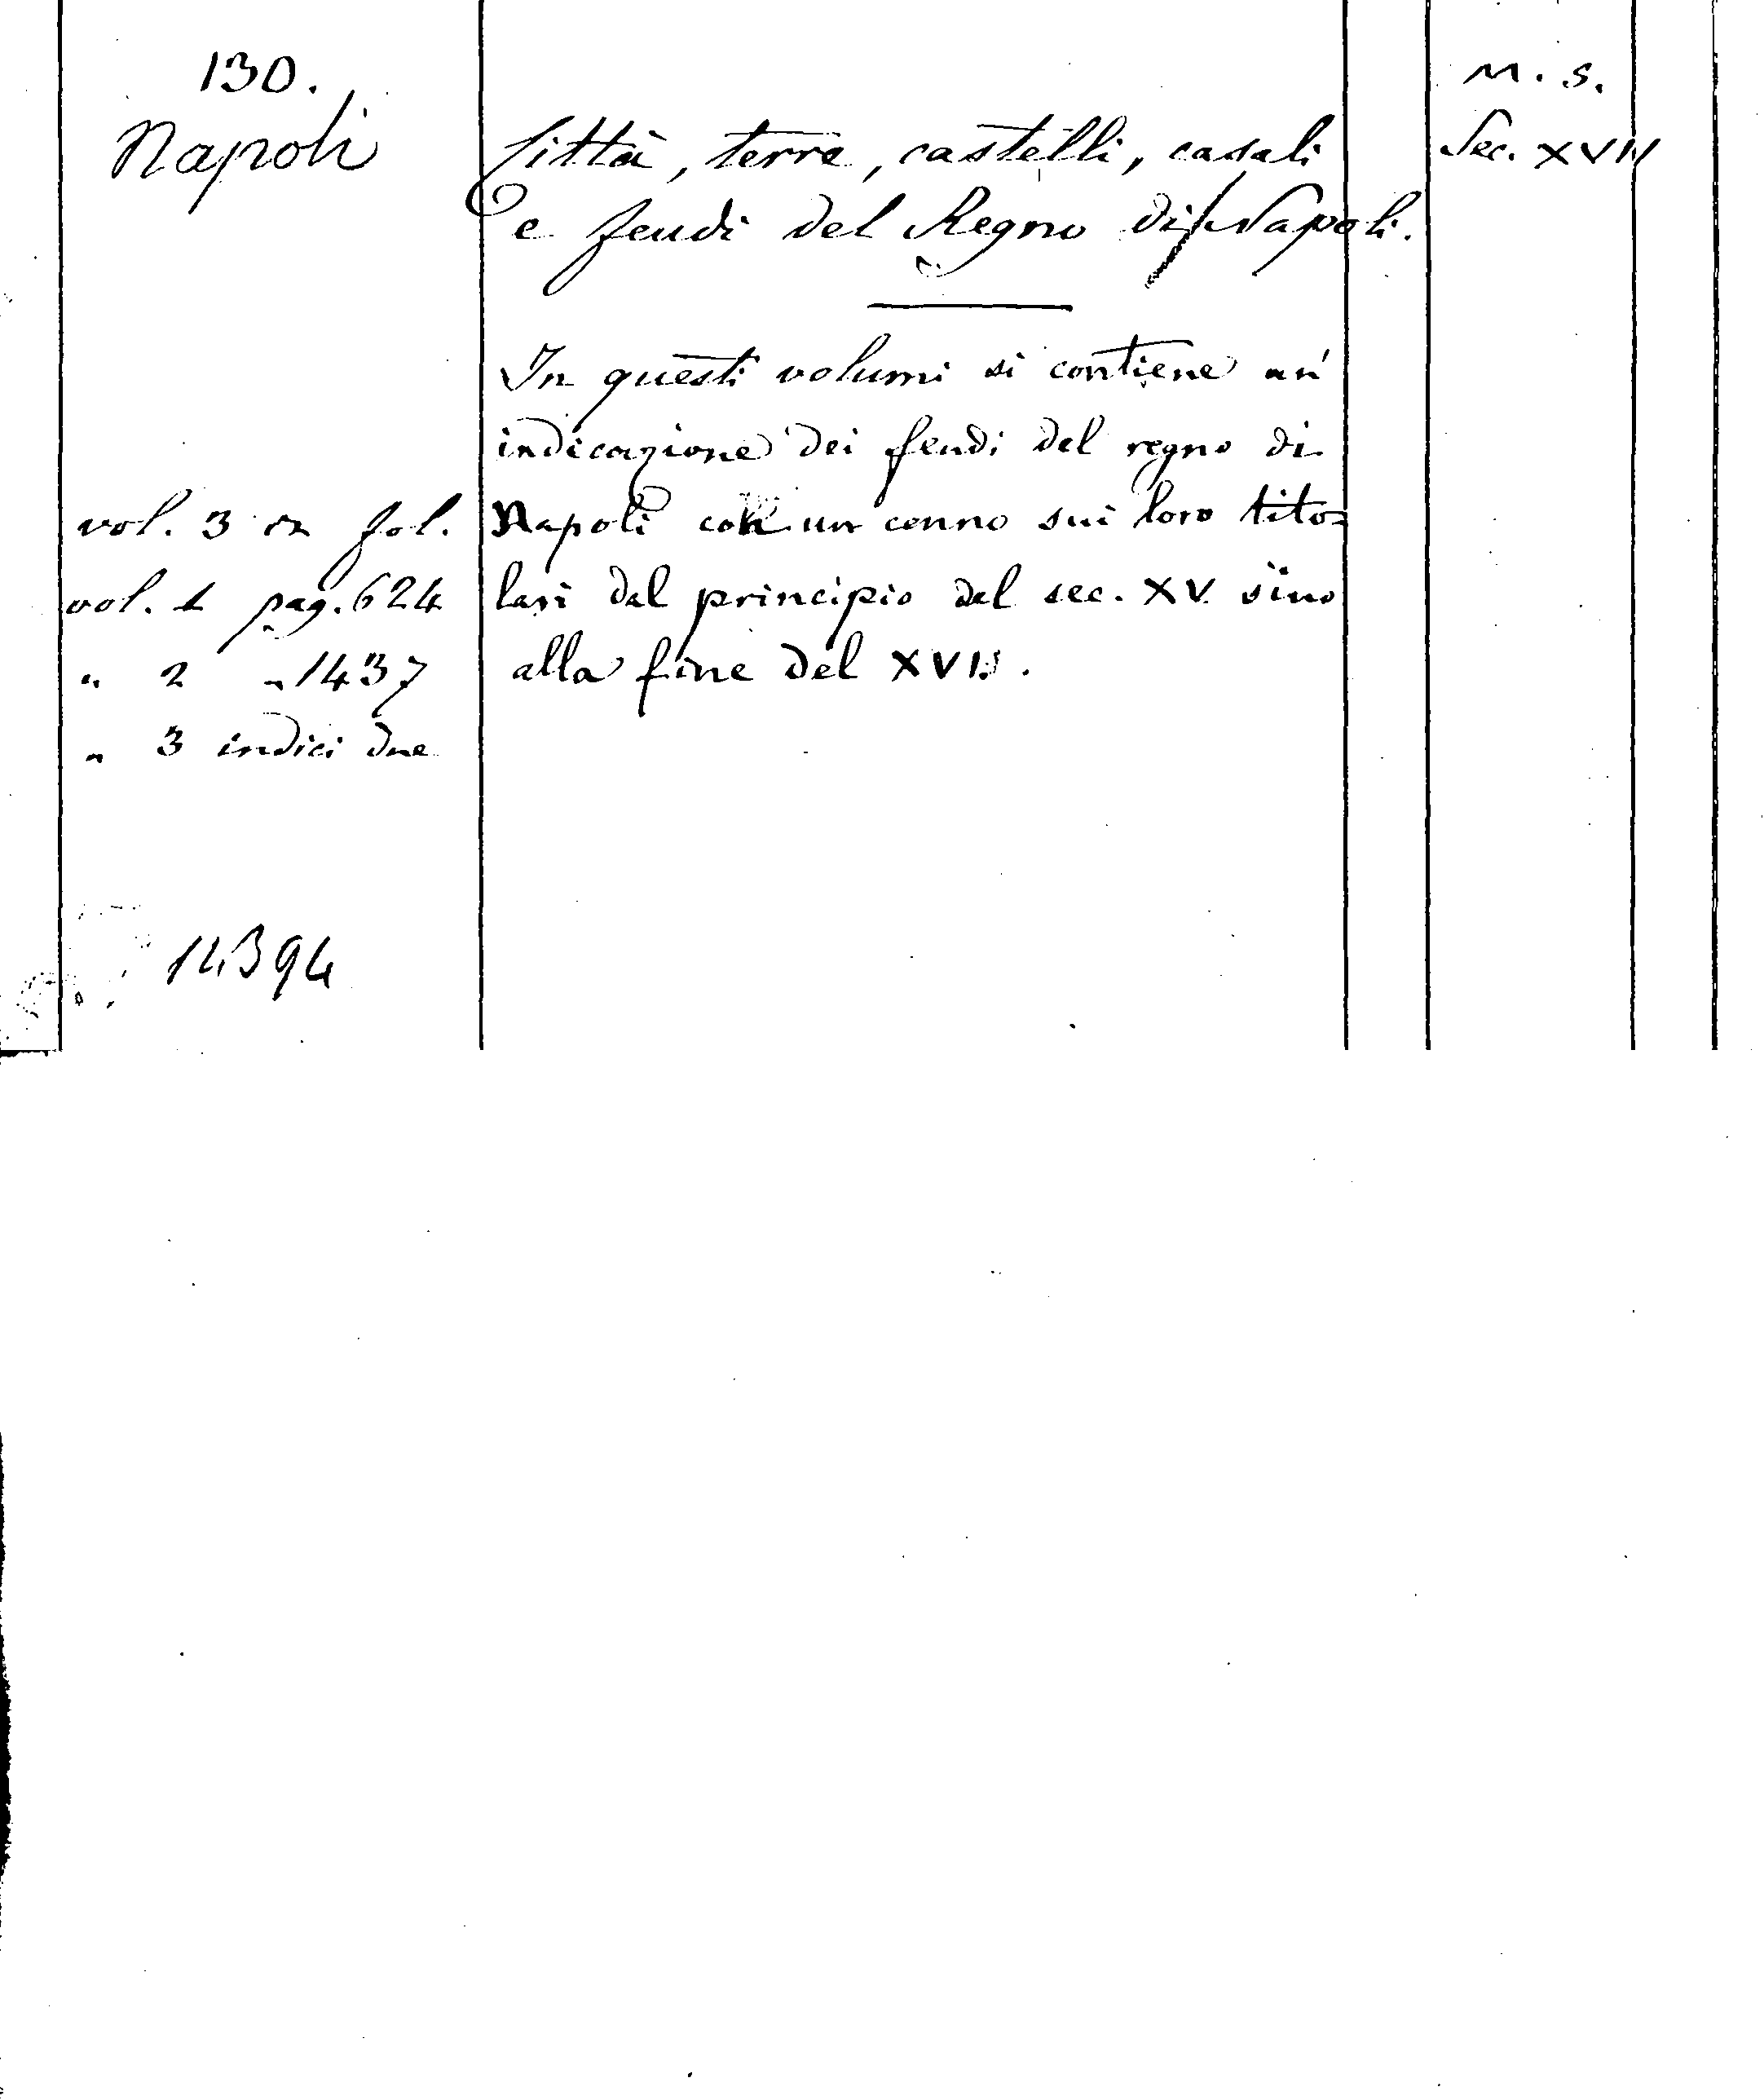 130.
M. S.
Napoli
Città, terre, castelli, casali
Sec. XVII
e feudi del Regno di Napoli.
In questi volumi si contiene un'
indicazione dei feudi del regno di
vol. 3 in fol.
Napoli con un cenno sui loro tito=
vol. 1 pag. 624
lari dal principio del sec. XV sino
" 2 " 1437
alla fine del XVII.
" 3 indici due
14394